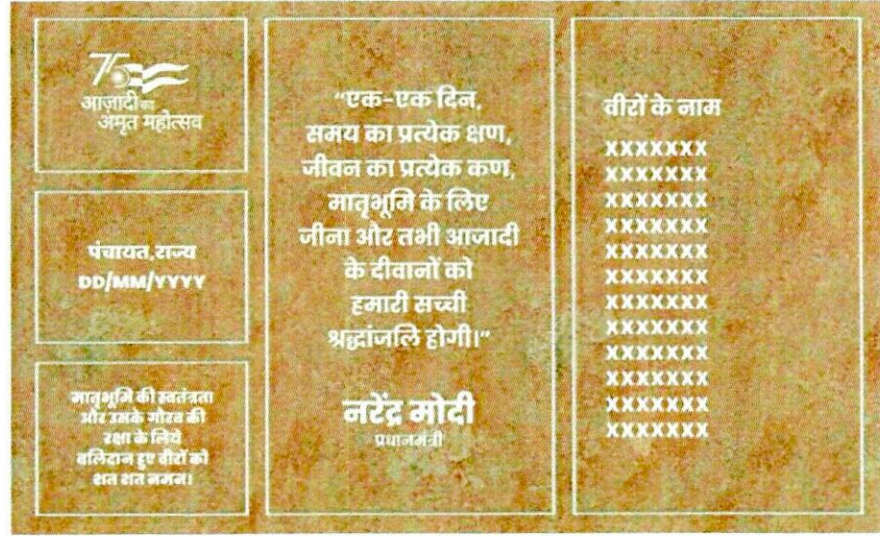 75
आज़ादी का
अमृत महोत्सव
पंचायत,राज्य
DD/MM/YYYY
मातृभूमि की स्वतंत्रता
और उसके गौरव की
रक्षा के लिये
बलिदान हुए वीरों को
शत शत नमन।
“एक-एक दिन,
समय का प्रत्येक क्षण,
जीवन का प्रत्येक कण,
मातृभूमि के लिए
जीना और तभी आजादी
के दीवानों को
हमारी सच्ची
श्रद्धांजलि होगी।”
नरेंद्र मोदी
प्रधानमंत्री
वीरों के नाम
XXXXXXX
XXXXXXX
XXXXXXX
XXXXXXX
XXXXXXX
XXXXXXX
XXXXXXX
XXXXXXX
XXXXXXX
XXXXXXX
XXXXXXX
XXXXXXX